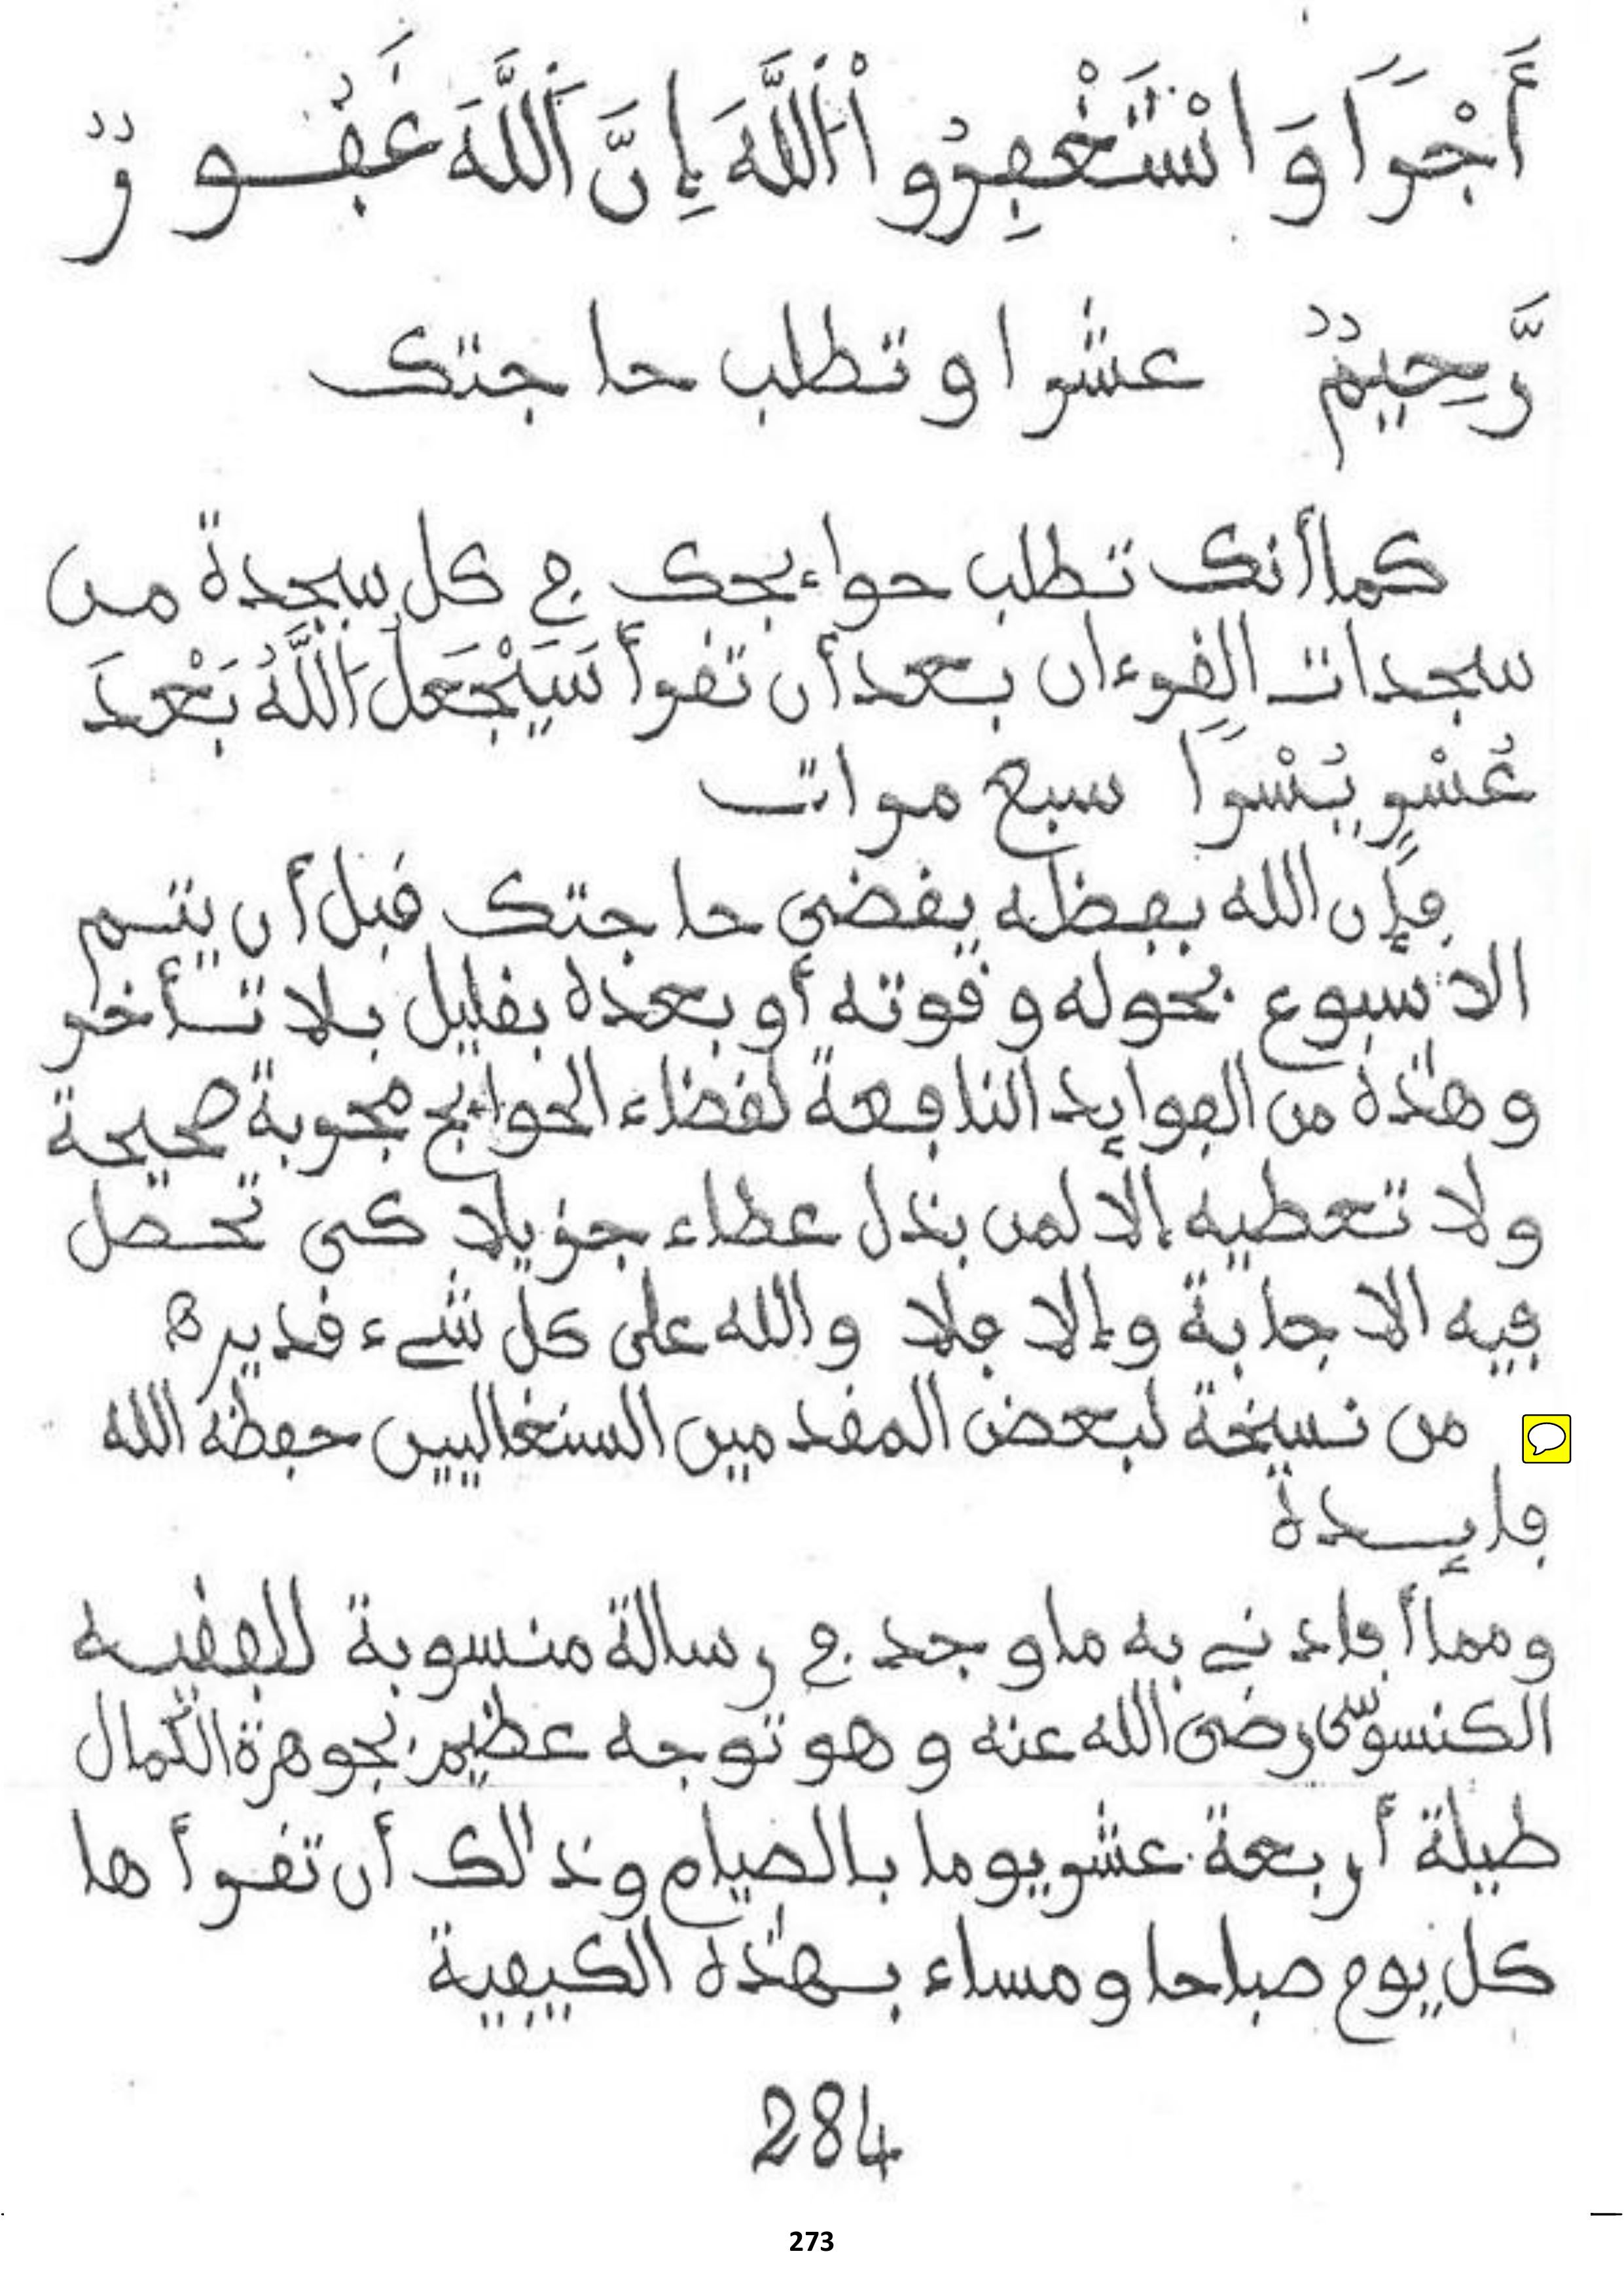 أَجْرًا وَاسْتَغْفِرُواْ اللَّهَ إِنَّ اَللَّهَ غَفُورٌ
رَّحِيمٌ عشرا وتطلب حاجتك
كما أنك تطلب حواءيجك في كل سجدة من
سجدات القرءان بعد أن تقرأ سَيَجْعَلُ اَللَّهُ بَعْدَ
عُسْرٍ يُسْرًا سبع مرات
فإن الله بفظله يقضي حاجتك قبل أن يتم
الاسبوع بحوله وقوته أو بعده بقليل بلا تأخر
وهذه من الفوايد النافعة لقظاء الحواءيج مجربة صحيحة
ولا تعطيه إلا لمن بذل عطاء جزيلا كي تحصل
فيه الاجابة وإلا فلا والله على كل شيء قدير ه
من نسخة لبعض المقدمين السنغاليين حفظه الله
فايدة
ومما أفادني به ما وجد في رسالة منسوبة للفقيه
الكنسوسي رضي الله عنه وهو توجه عظيم بجوهرة الكمال
طيلة أربعة عشر يوما بالصيام وذالك أن تقرأها
كل يوم صباحا ومساء بهذه الكيفية
284
273